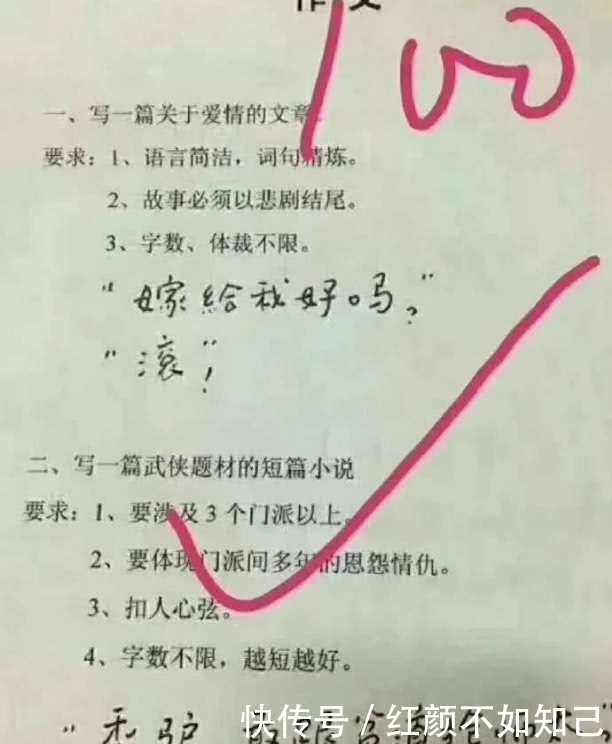 作文
100
一、写一篇关于爱情的文章
要求：1、语言简洁，词句精炼。
2、故事必须以悲剧结尾。
3、字数、体裁不限。
“嫁给我好吗？”
“滚”！
二、写一篇武侠题材的短篇小说
要求：1、要涉及3个门派以上。
2、要体现门派间多年的恩怨情仇。
3、扣人心弦。
4、字数不限，越短越好。
“秃驴
快传号/红颜不如知己